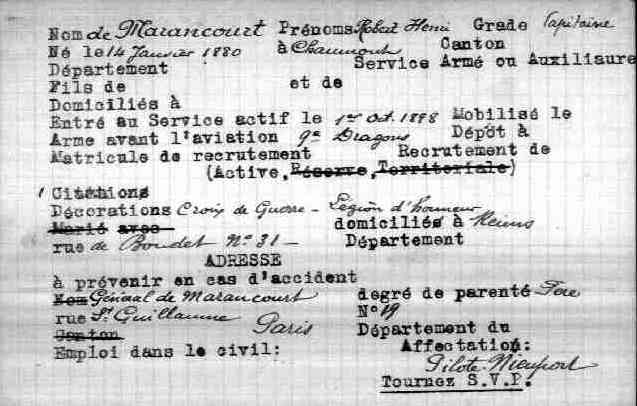 Nom de Marancourt Prénoms Robert Henri Grade Capitaine
Né le 14 Janvier 1880 à Chaumont Canton
Département Service Armé ou Auxiliaure
Fils de et de
Domiciliés à
Entré au Service actif le 1er Oct. 1898 Mobilisé le
Arme avant l'aviation 9e Dragons Dépôt à
Matricule de recrutement Recrutement de
(Active, Réserve, Territoriale)
1 Citations
Décorations Croix de Guerre - Légion d'honneur
Marié avec domiciliés à Reims
rue de Boudet N° 31 — Département
ADRESSE
à prévenir en cas d'accident
Nom Général de Marancourt degré de parenté Père
rue St Guillaume Paris N° 19
Canton Département du
Emploi dans le civil: Affectation:
Pilote-Nieuport
Tournez S.V.P.